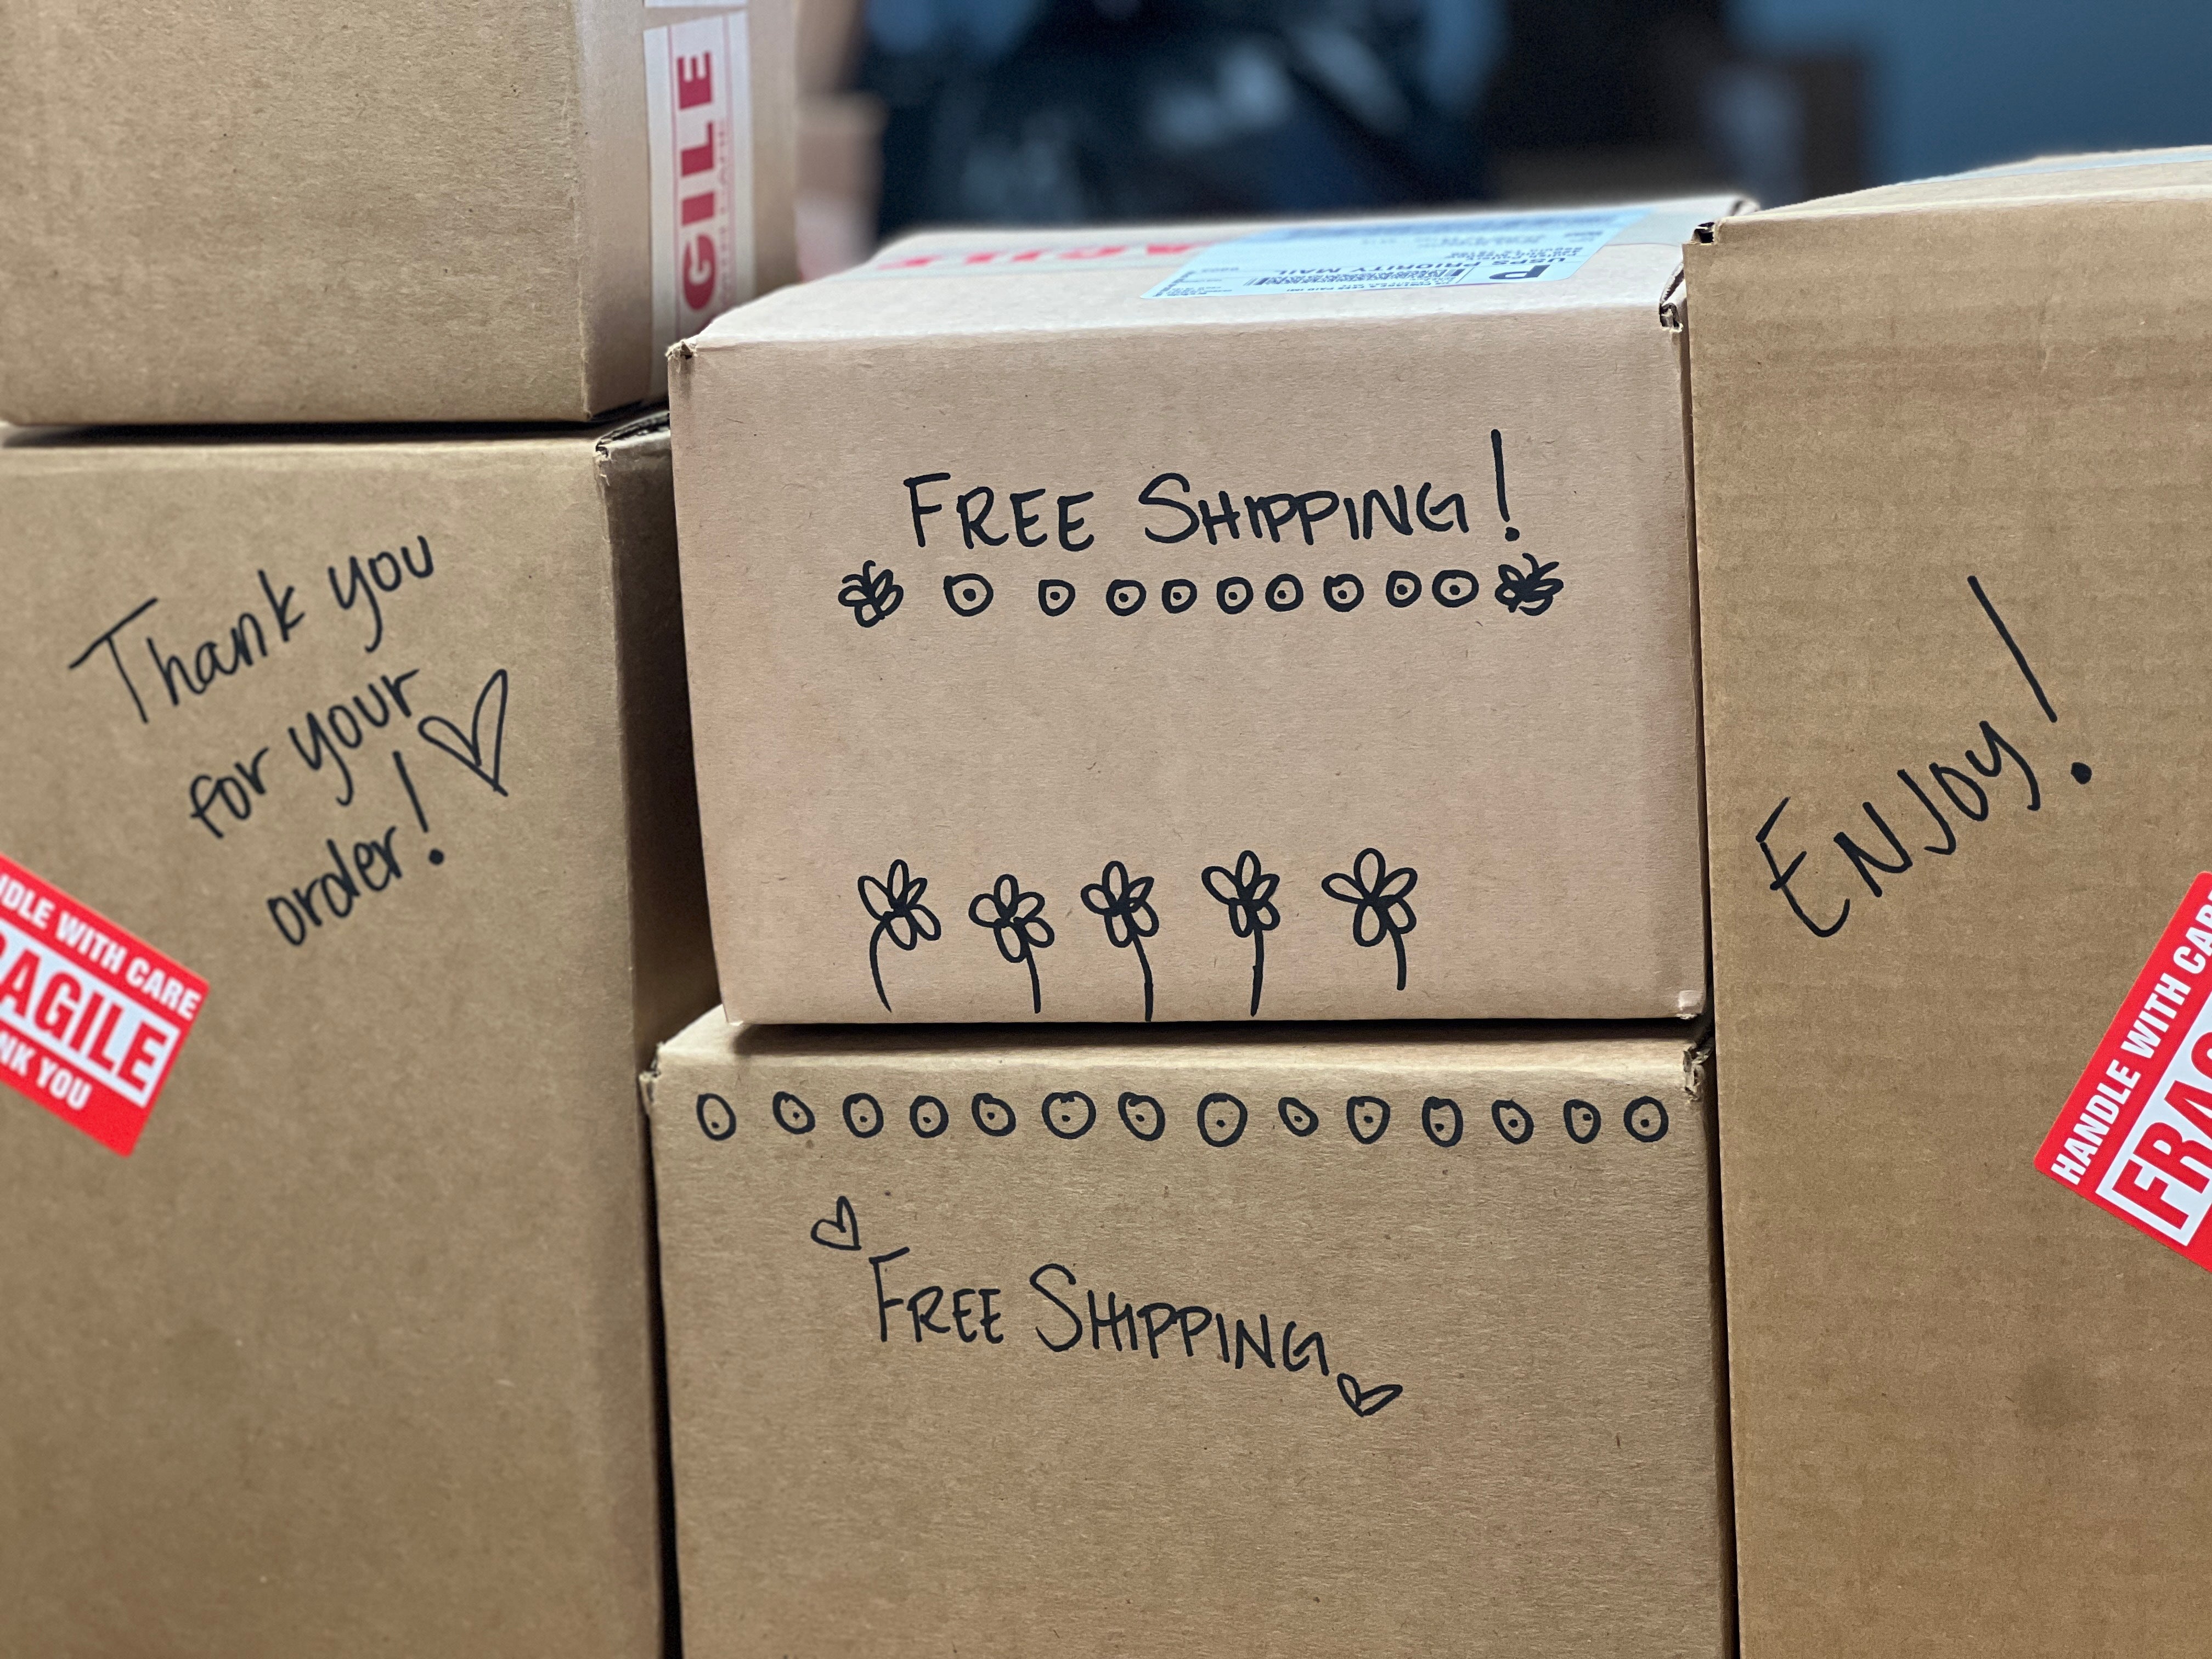 GILE
USPS PRIORITY MAIL
P
FREE SHIPPING!
Thank you
for your
order!
ENJOY!
DLE WITH CARE
RAGILE
NK YOU
HANDLE WITH CAR
FRA
FREE SHIPPING